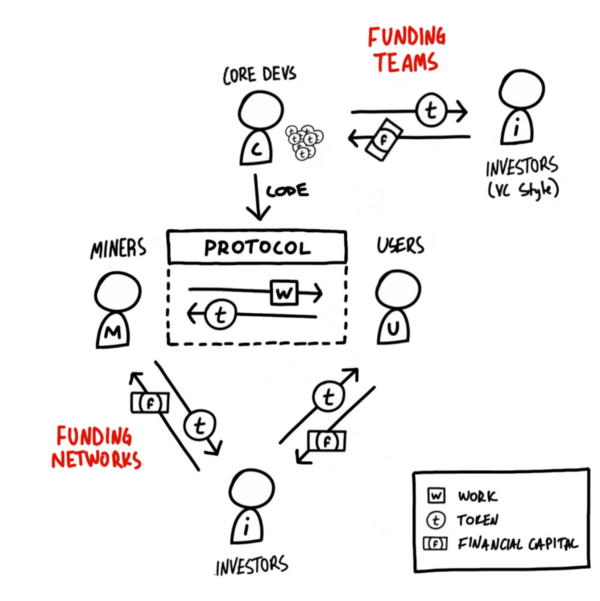 FUNDING
TEAMS
CORE DEVS
t
f
C
t t t
t t t
t
i
INVESTORS
(VC Style)
CODE
MINERS
PROTOCOL
USERS
W
t
M
U
f
t
t
f
FUNDING
NETWORKS
i
INVESTORS
W WORK
t TOKEN
(F) FINANCIAL CAPITAL